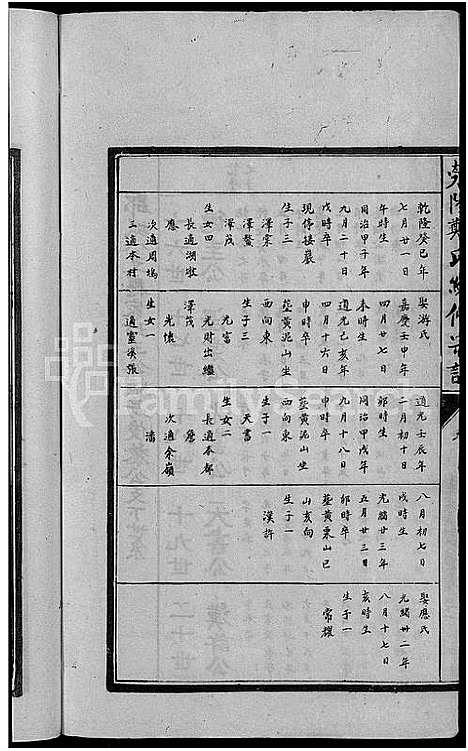 乾隆癸巳年
七月廿一日
午時生
同治甲子年
九月二十日
戌時卒
現停接嚴
生子三
澤棠
澤鰲
澤茂
生女四
長適湖壯
應
次適周塢
三適本村
娶游氏
嘉慶壬申年
四月廿七日
未時生
道光己亥年
四月十六日
申時卒
葬黃泥山坐
西向東
生子三
光富
光財出繼
澤茂
光懷
生女一
適室溪張
道光壬辰年
二月初十日
卯時生
同治甲戌年
九月十八日
申時卒
葬黃泥山坐
西向東
生子一
天書
生女二
長適本都
詹
次適余嶺
潘
八月初七日
戌時生
光緒廿三年
五月廿三日
卯時卒
葬黃栗山巳
山亥向
生子一
漢許
娶應氏
光緒廿二年
八月十七日
亥時生
生子一
常耀
FamilySearch